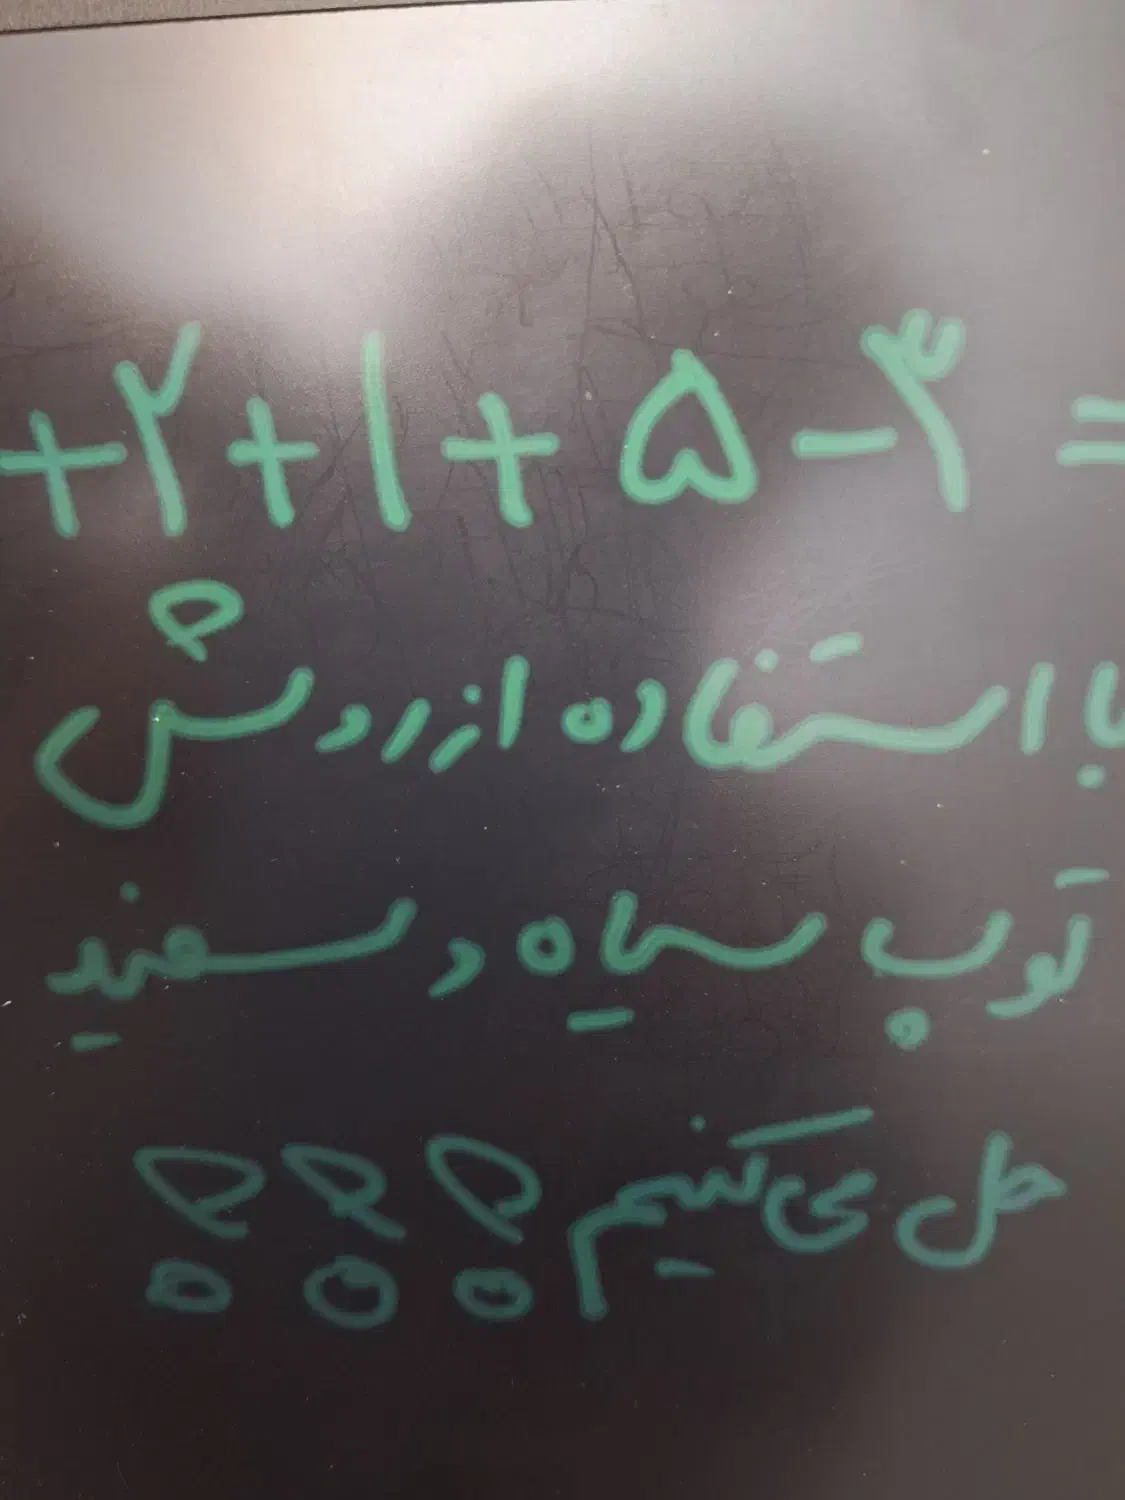 +۲+۱+۵-۳=
با استفاده از روش
توپ سیاه و سفید
حل می‌کنیم ؟؟؟